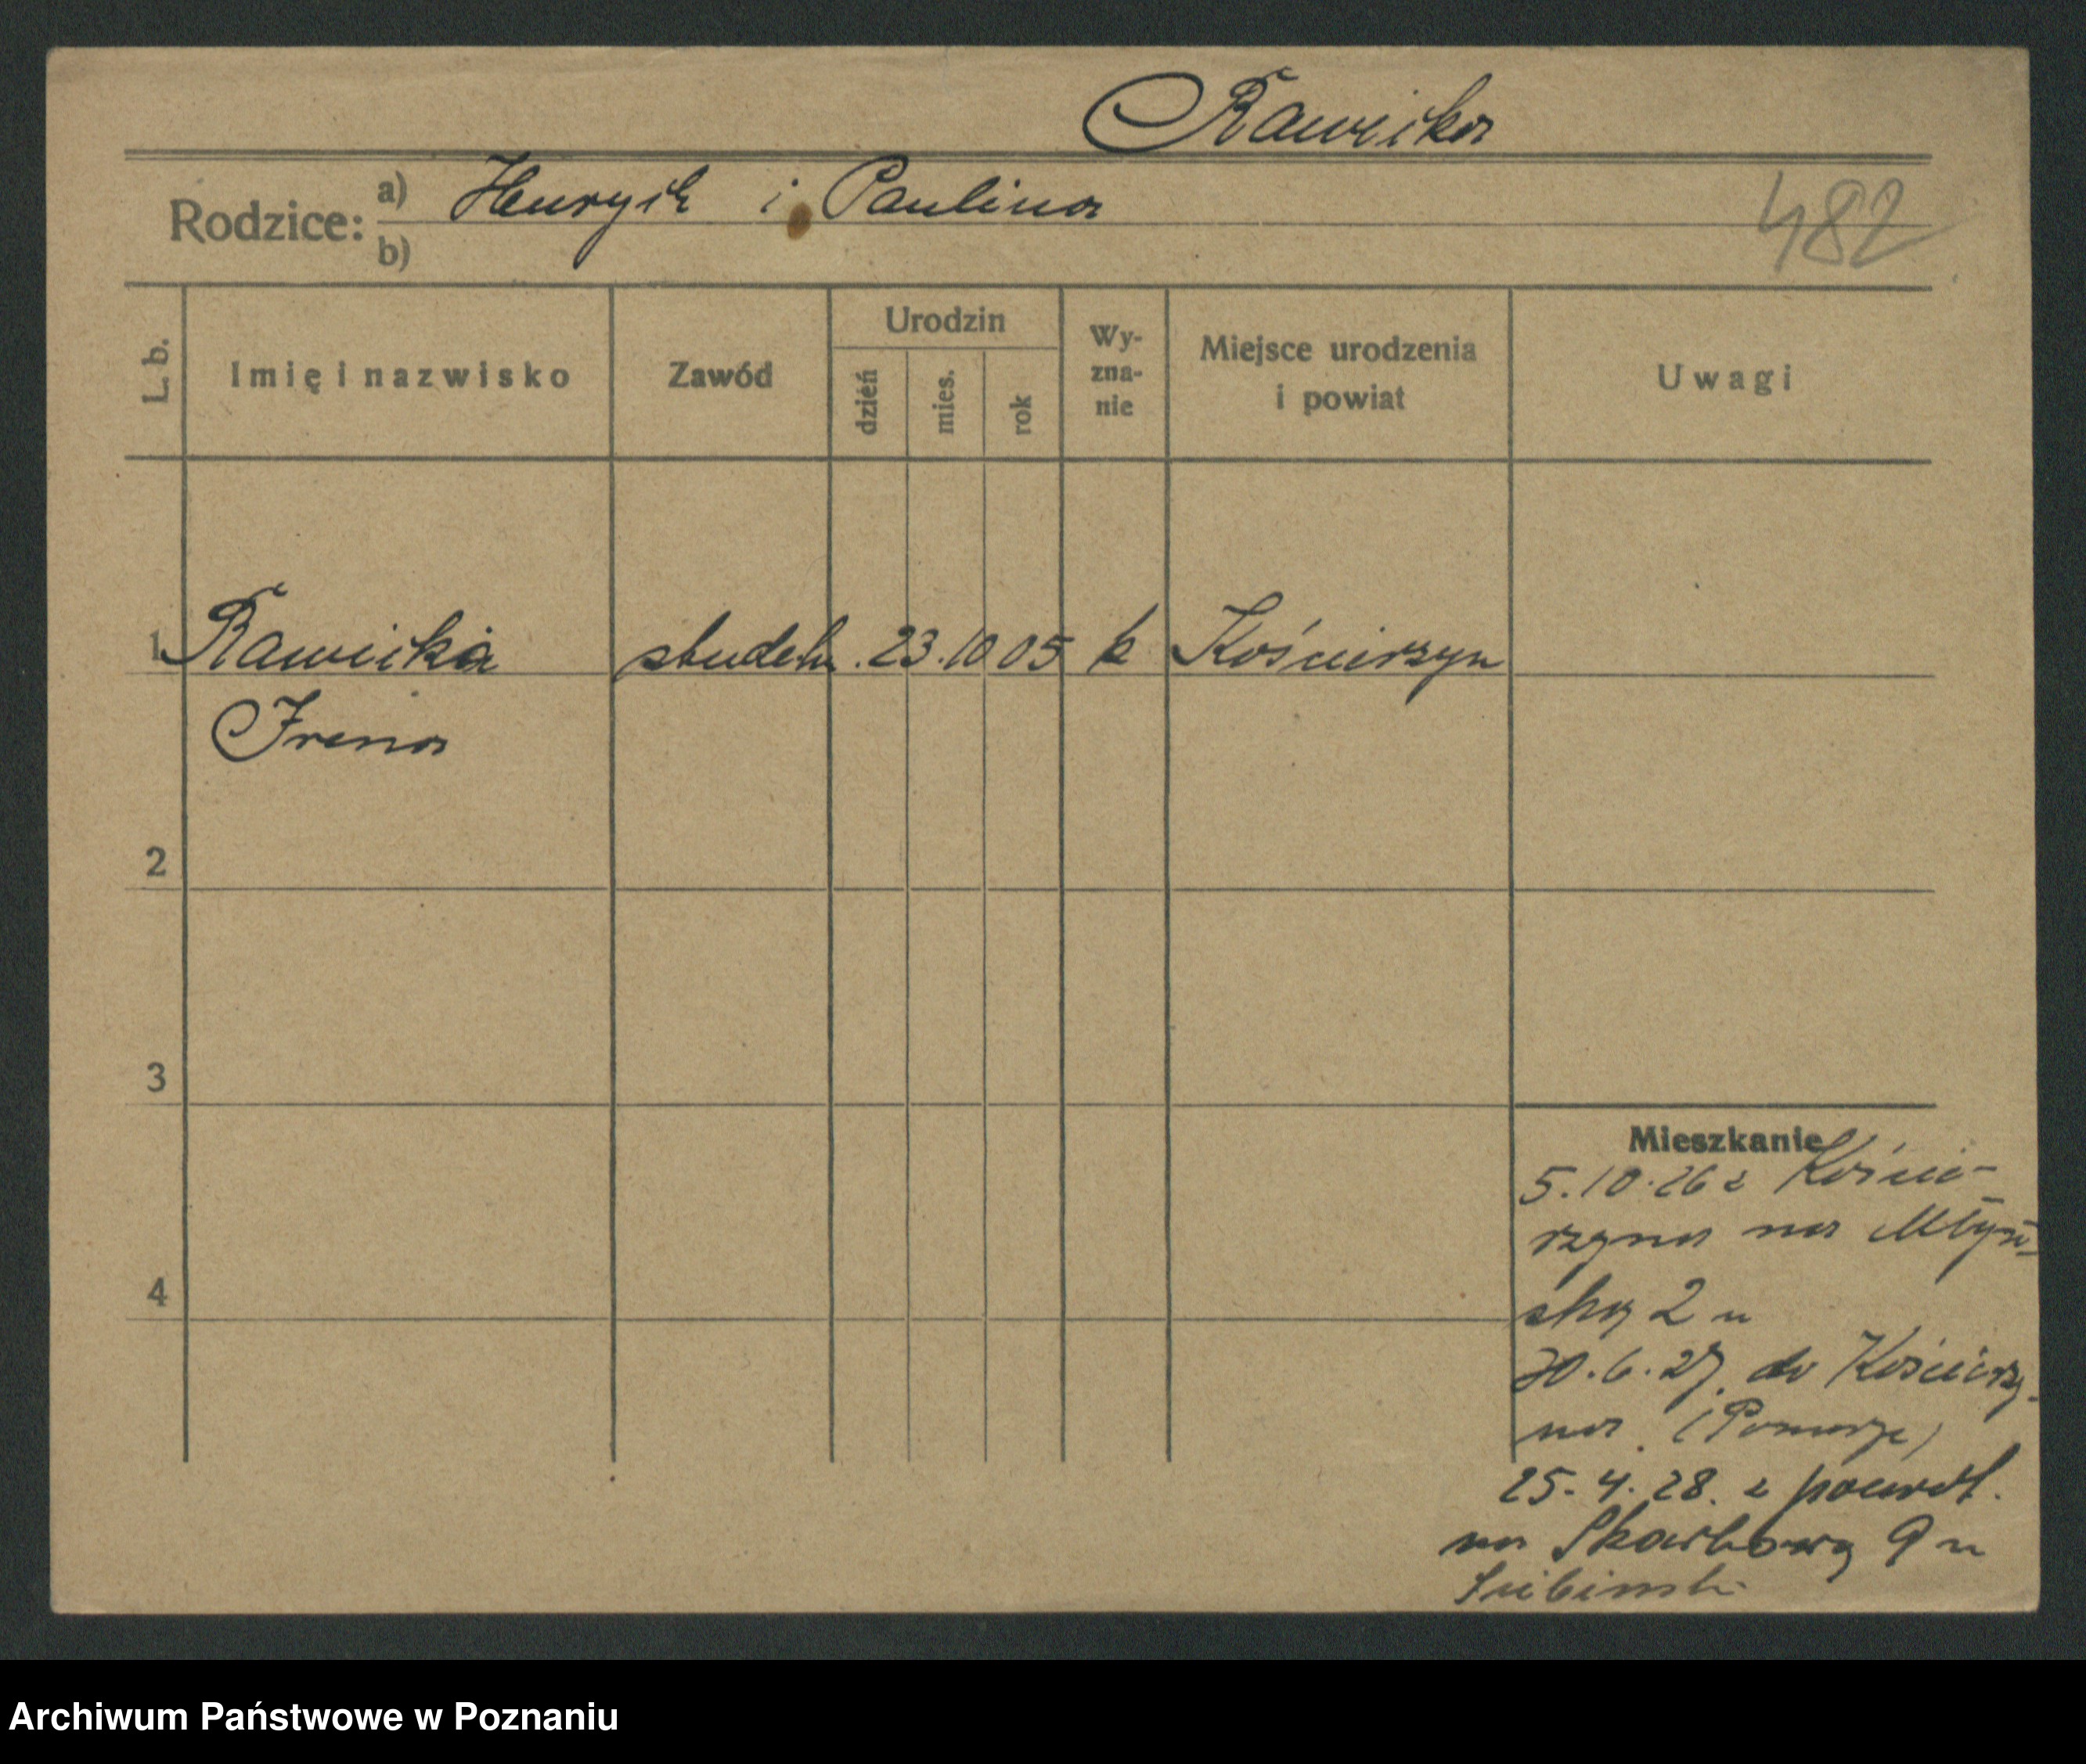 Rawicka
Rodzice: a) Henryk i Paulina
b)
482
L. b. Imię i nazwisko Zawód Urodzin dzień mies. rok Wy-zna-nie Miejsce urodzenia i powiat Uwagi
1 Rawicka student. 23.10 05 k Kościerzyn
Irena
2
3
4
Mieszkanie
5.10.26 z Koście-
rzyna na Młyń-
ską 2 u
30.6.27. do Kościerzy-
na (Pomorze)
25.4.28. z powrot.
na Skarbową 9 u
Archiwum Państwowe w Poznaniu